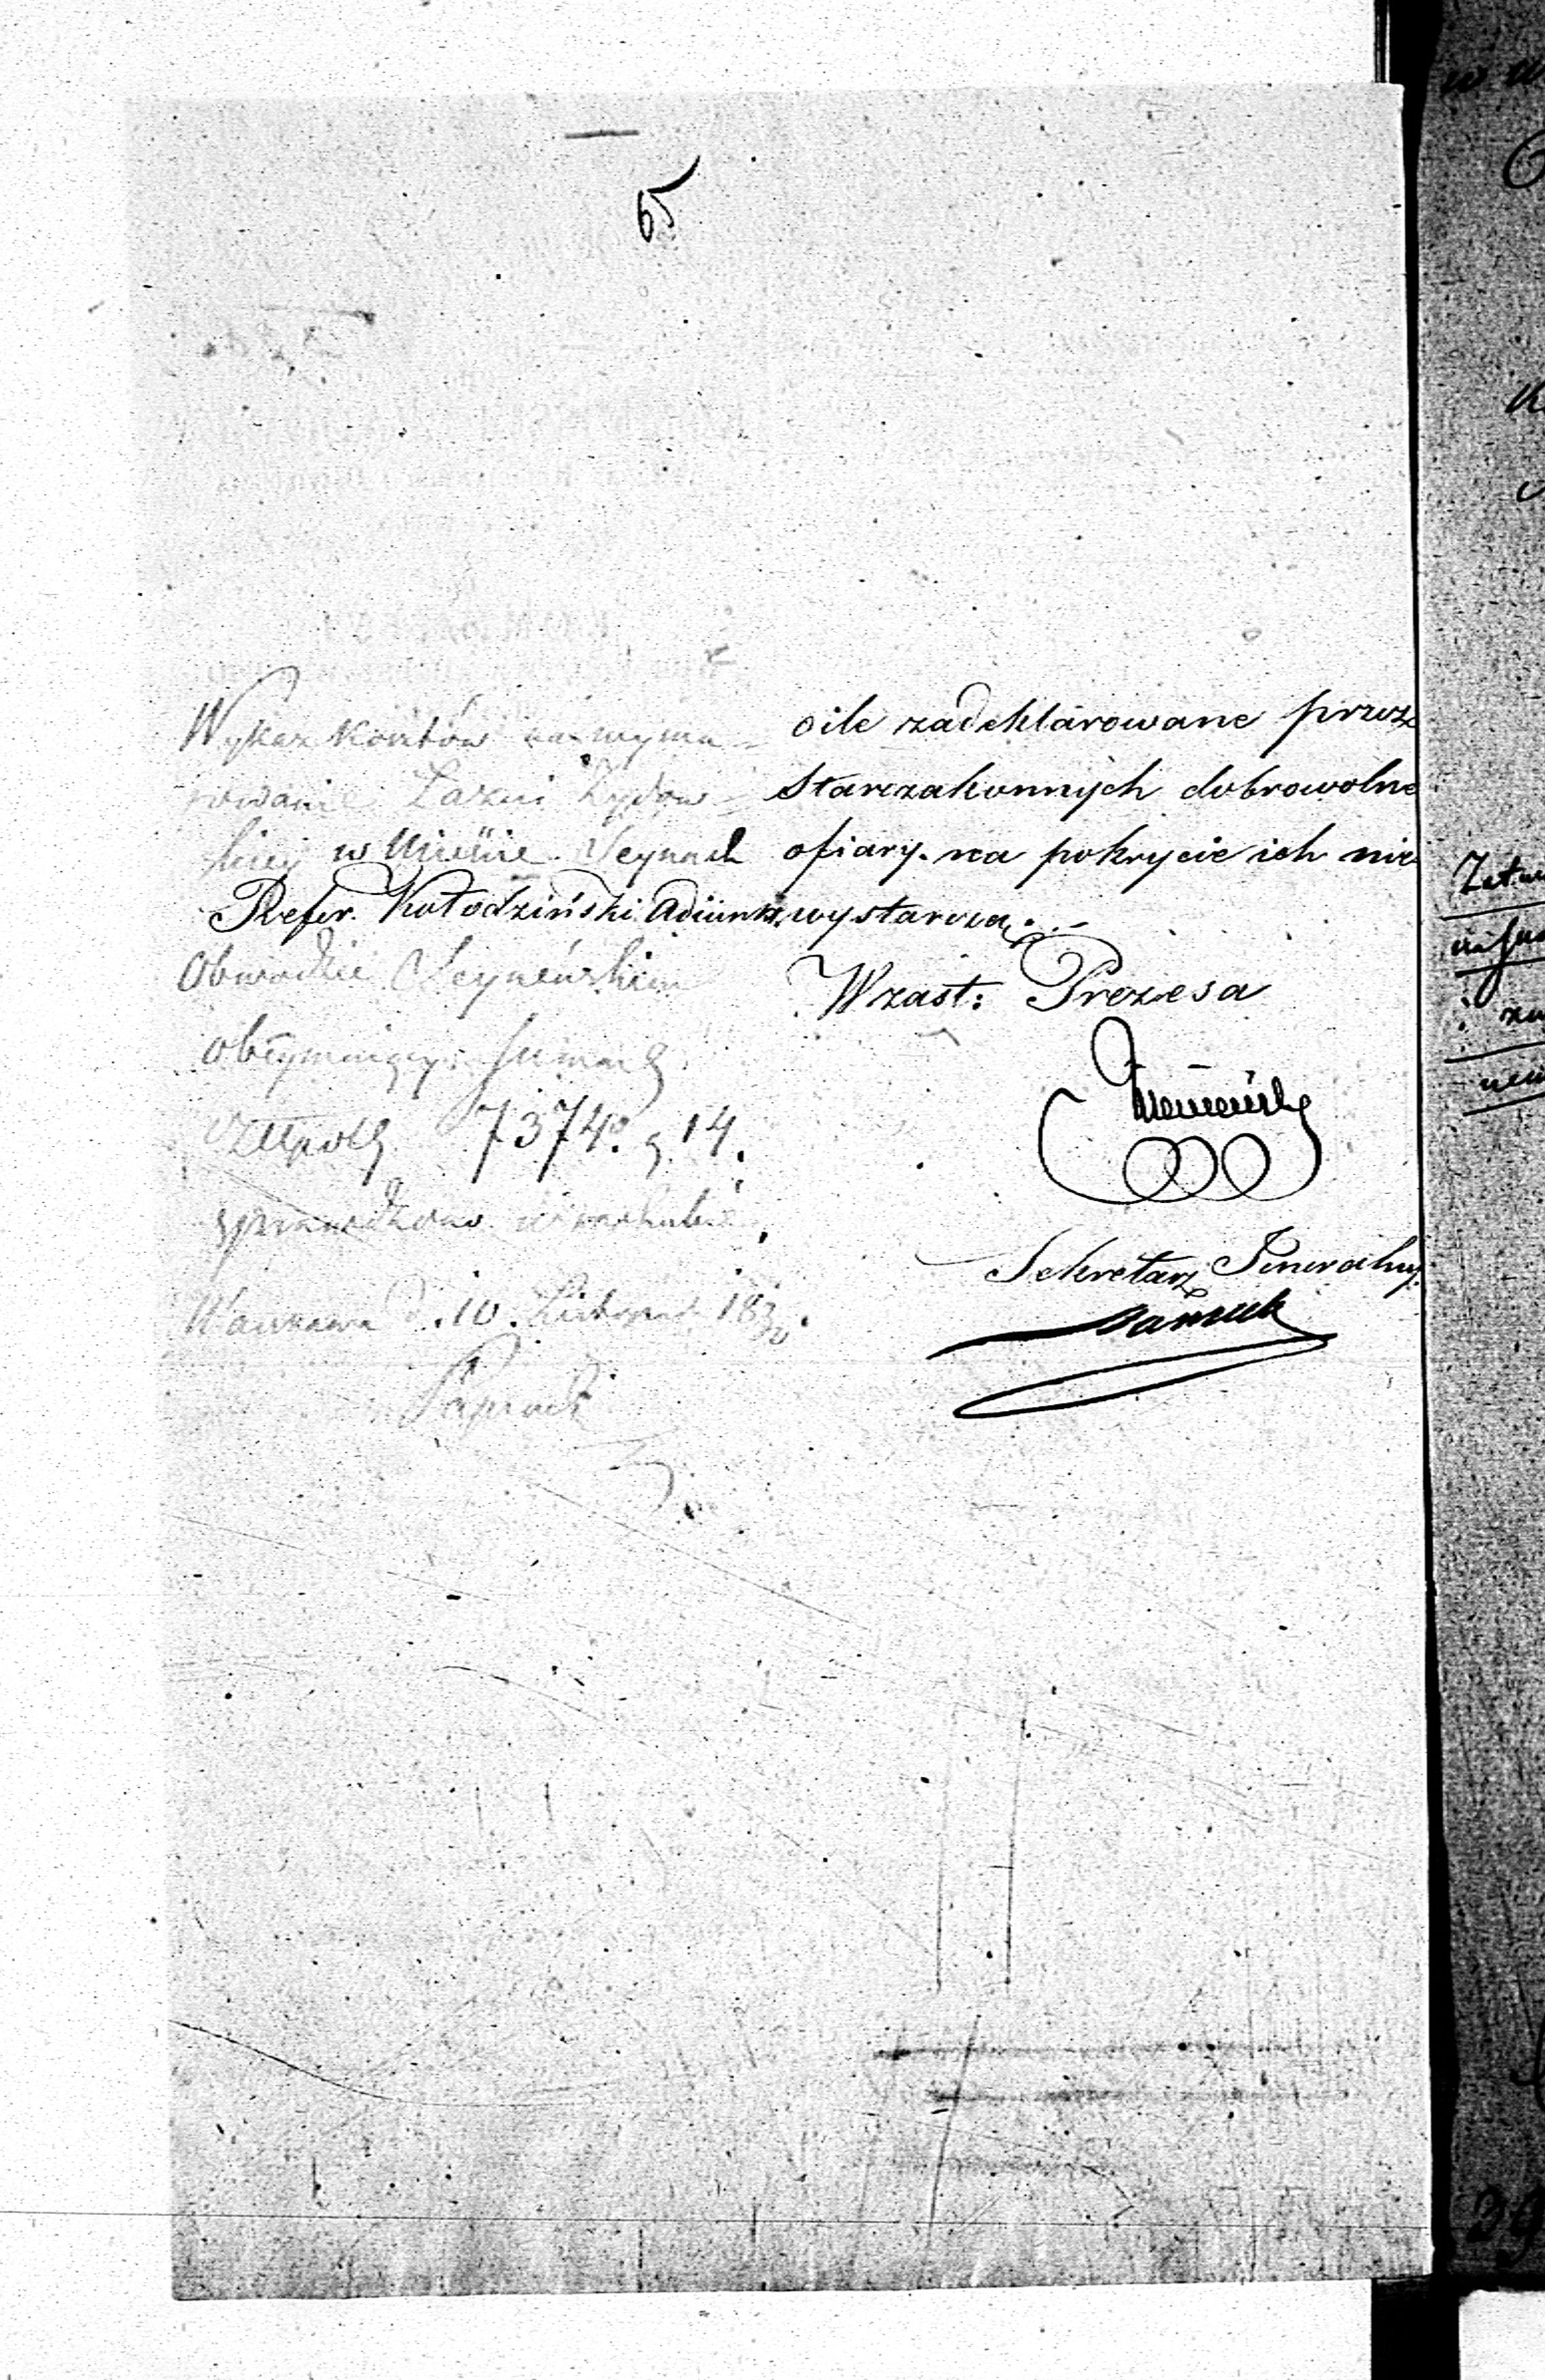 65
Wykaz Kosztów na wymu-
rowanie Łazni Żydow-
skiey w Mieście Seynach
Refer. Kołodziński Adiunkt.
Obwodzie Seyneńskim
obeymuiący Summę
Złtpols 7374 g 14.
sprawdzono w rachubie.
Warszawa d. 10. Listopad 18
oile zadeklarowane przez
Starozakonnych dobrowolne
ofiary. na pokrycie ich nie
wystarczą.
W zast: Prezesa
Sekretarz Jeneralny.